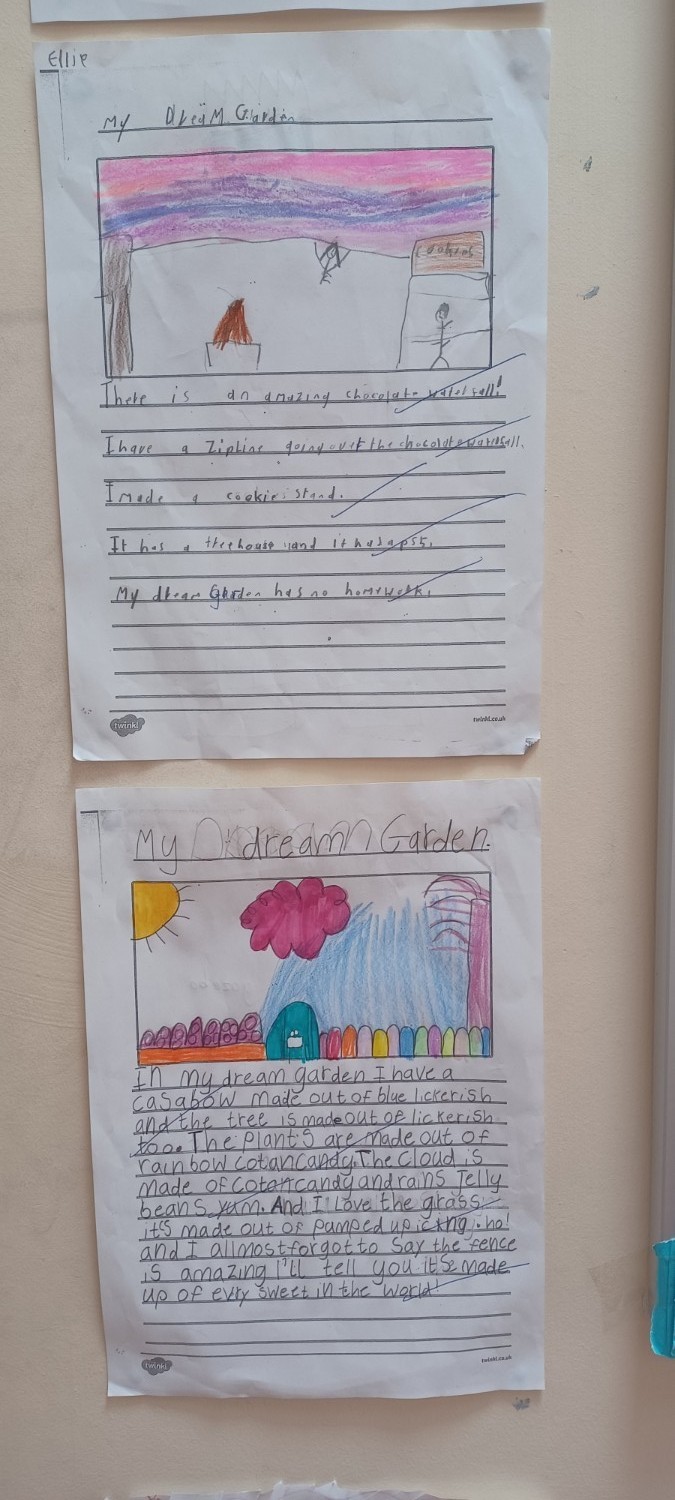 Ellie
My Dream Garden
cookies
There is an amazing chocolate waterfall!
I have a Zipline going over the chocolate waterfall.
I made a cookie stand.
It has a treehouse and it has a ps5.
My dream Garden has no homework.
twinkl
twinkl.co.uk
My dream Garden.
In my dream garden I have a
casabow made out of blue lickerish
and the tree is made out of lickerish
too. The plants are made out of
rainbow cotancandy. The cloud is
made of cotancandy and rains Jelly
beans yum. And I love the grass
it's made out of pamped up icing. ho!
and I allmost forgot to say the fence
is amazing I'll tell you its made
up of evry sweet in the world!
twinkl
twinkl.co.uk